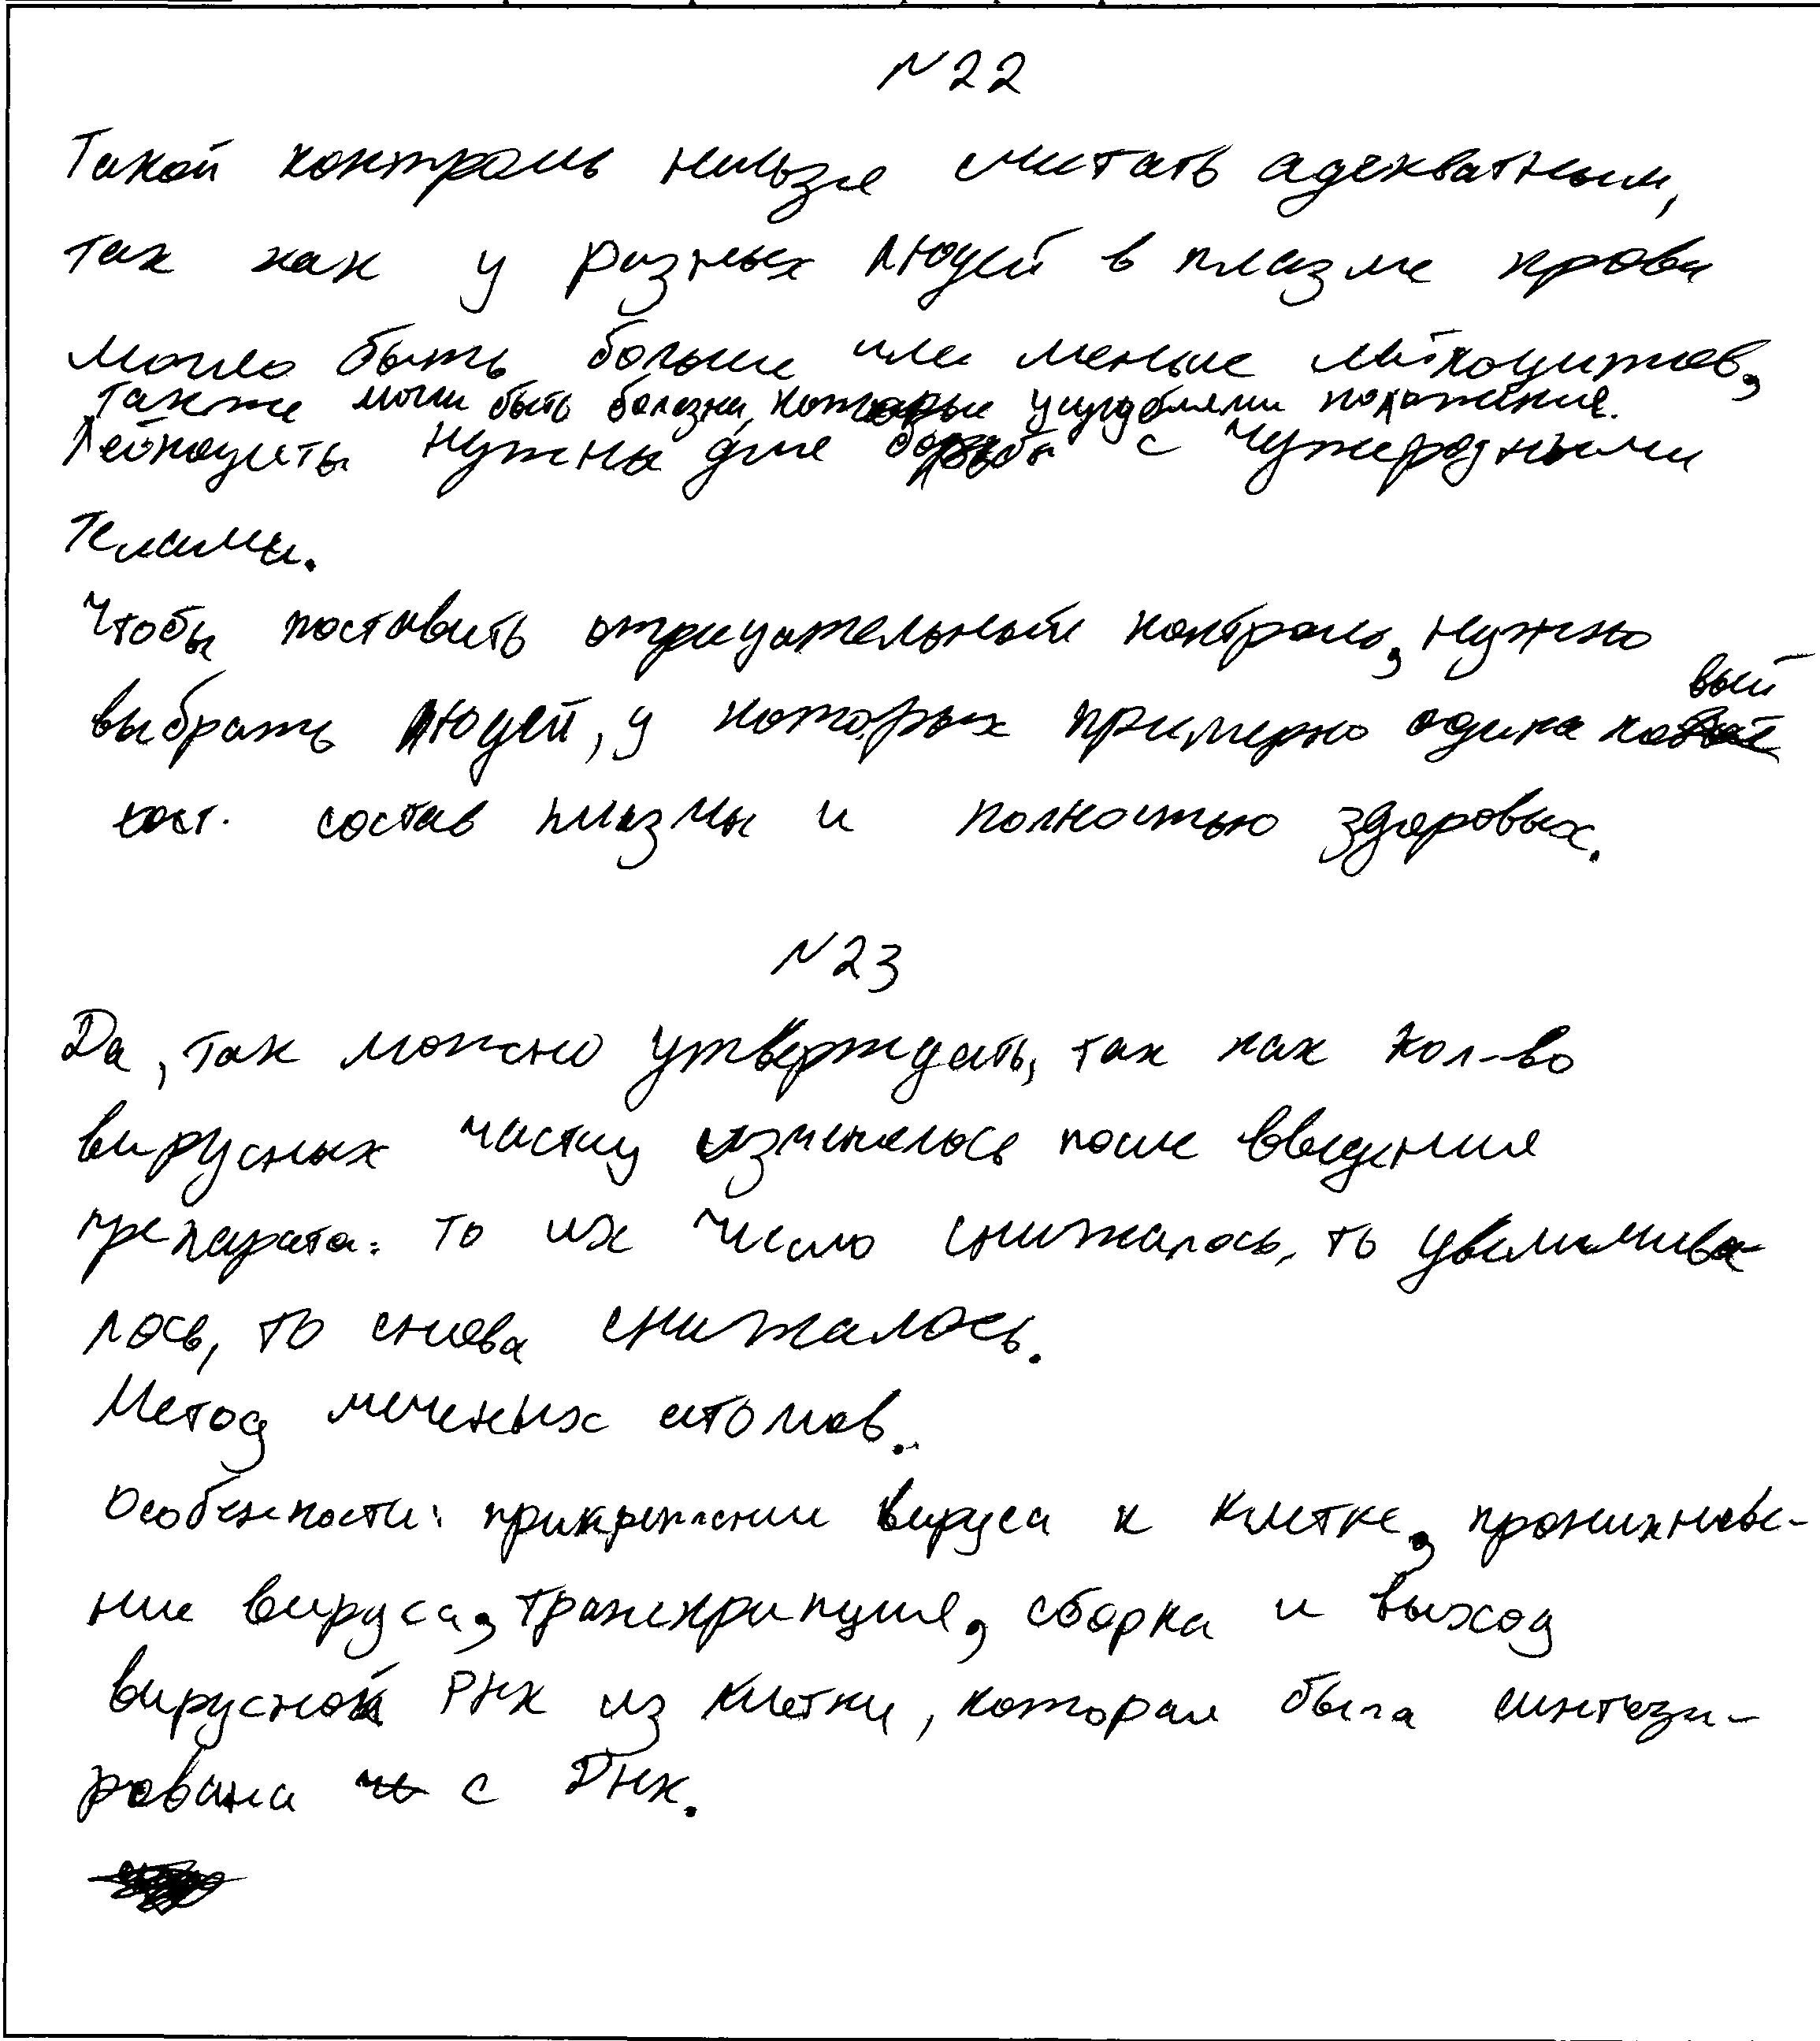 N22
Такой контроль нельзя считать адекватным,
так как у разных людей в плазме крови
могло быть больше или меньше лейкоцитов,
также могли быть болезни, которые усугубляли положение.
Лейкоциты нужны для борьбы с чужеродными
телами.
Чтобы поставить отрицательный контроль, нужно
выбрать людей, у которых примерно одинаковый
состав плазмы и полностью здоровых.
N23
Да, так можно утверждать, так как кол-во
вирусных частиц изменялось после введения
препарата: то их число снижалось, то увеличива-
лось, то снова снижалось.
Метод меченых атомов.
Особенности: прикрепление вируса к клетке, проникнове-
ние вируса, транскрипция, сборка и выход
вирусной РНК из клетки, которая была синтези-
рована с ДНК.